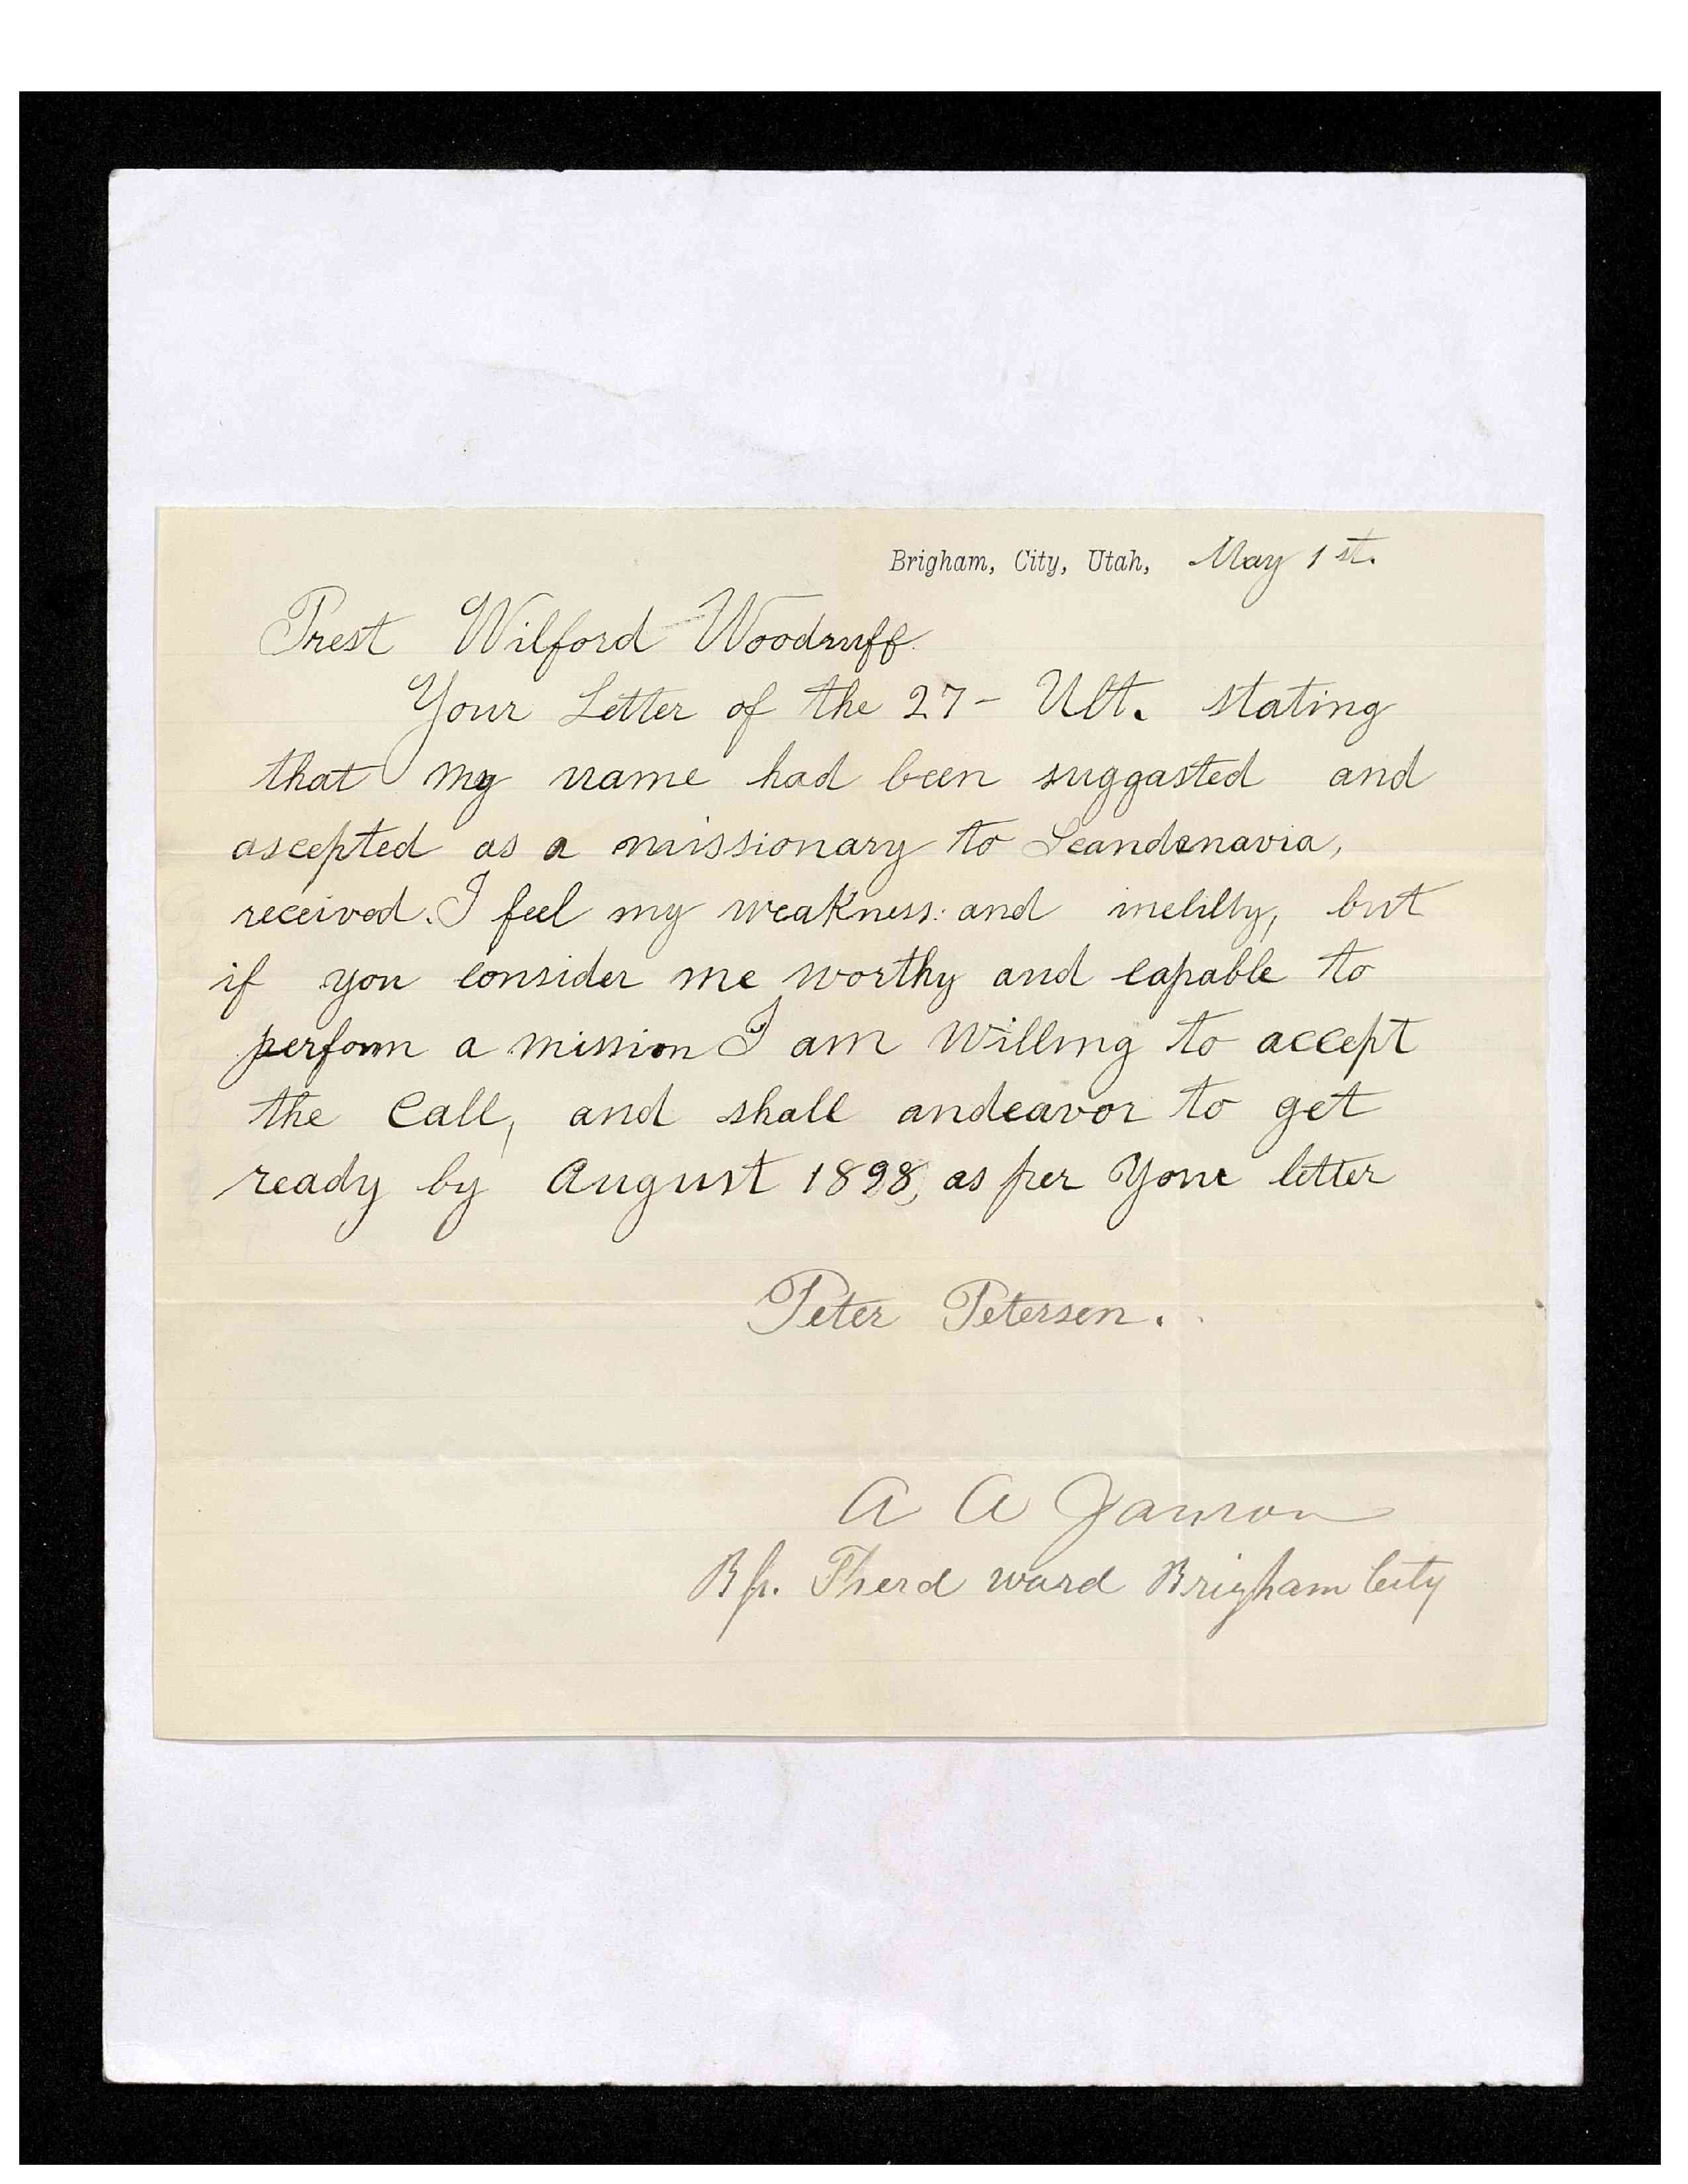 Brigham, City, Utah, May 1st.
Prest Wilford Woodruff.
Your Letter of the 27- Ult. stating
that my name had been suggasted and
ascepted as a missionary to Scandenavia,
received. I feel my weakness: and inelilty, but
if you consider me worthy and capable to
perform a mission I am Willing to accept
the Call, and shall andeavor to get
ready by August 1898, as per Your letter
Peter Petersen.
A A Janson
Bp. Therd ward Brigham City